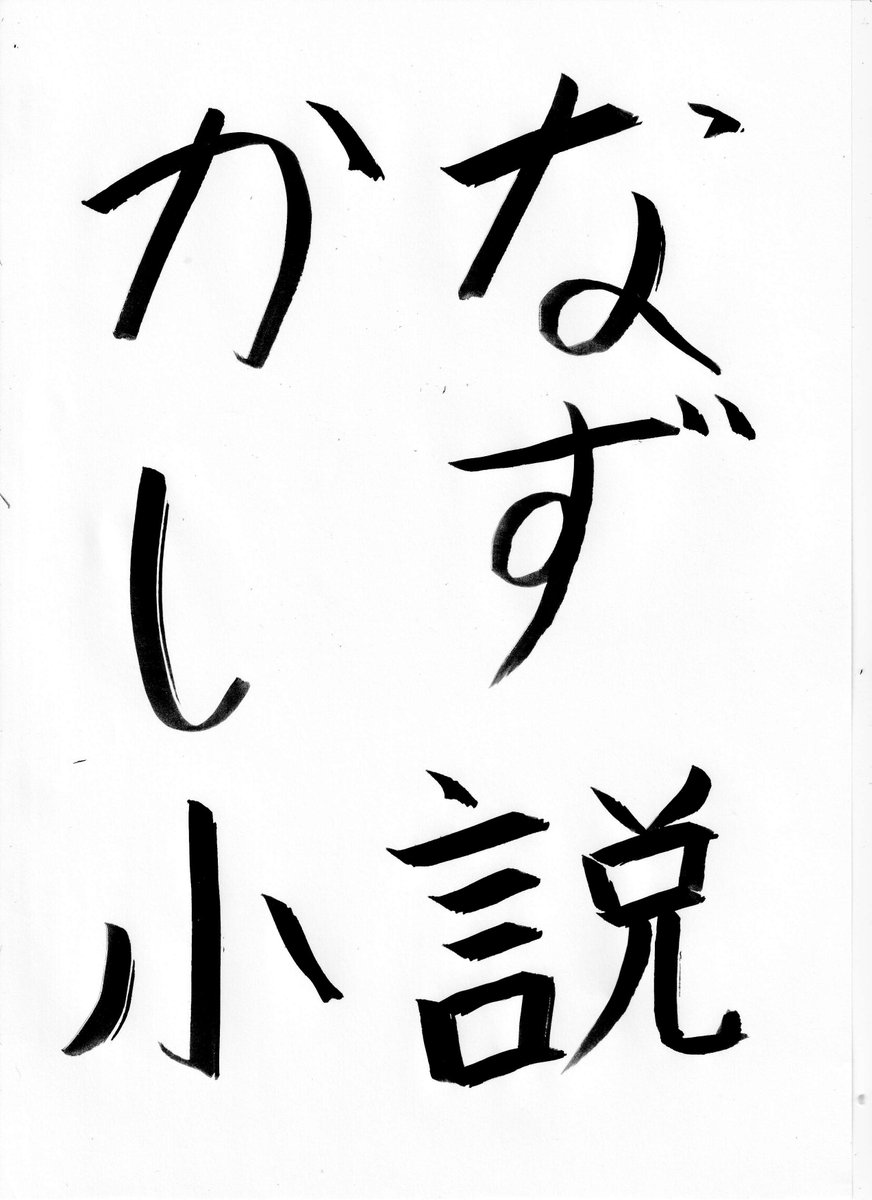 かな
しず
小説